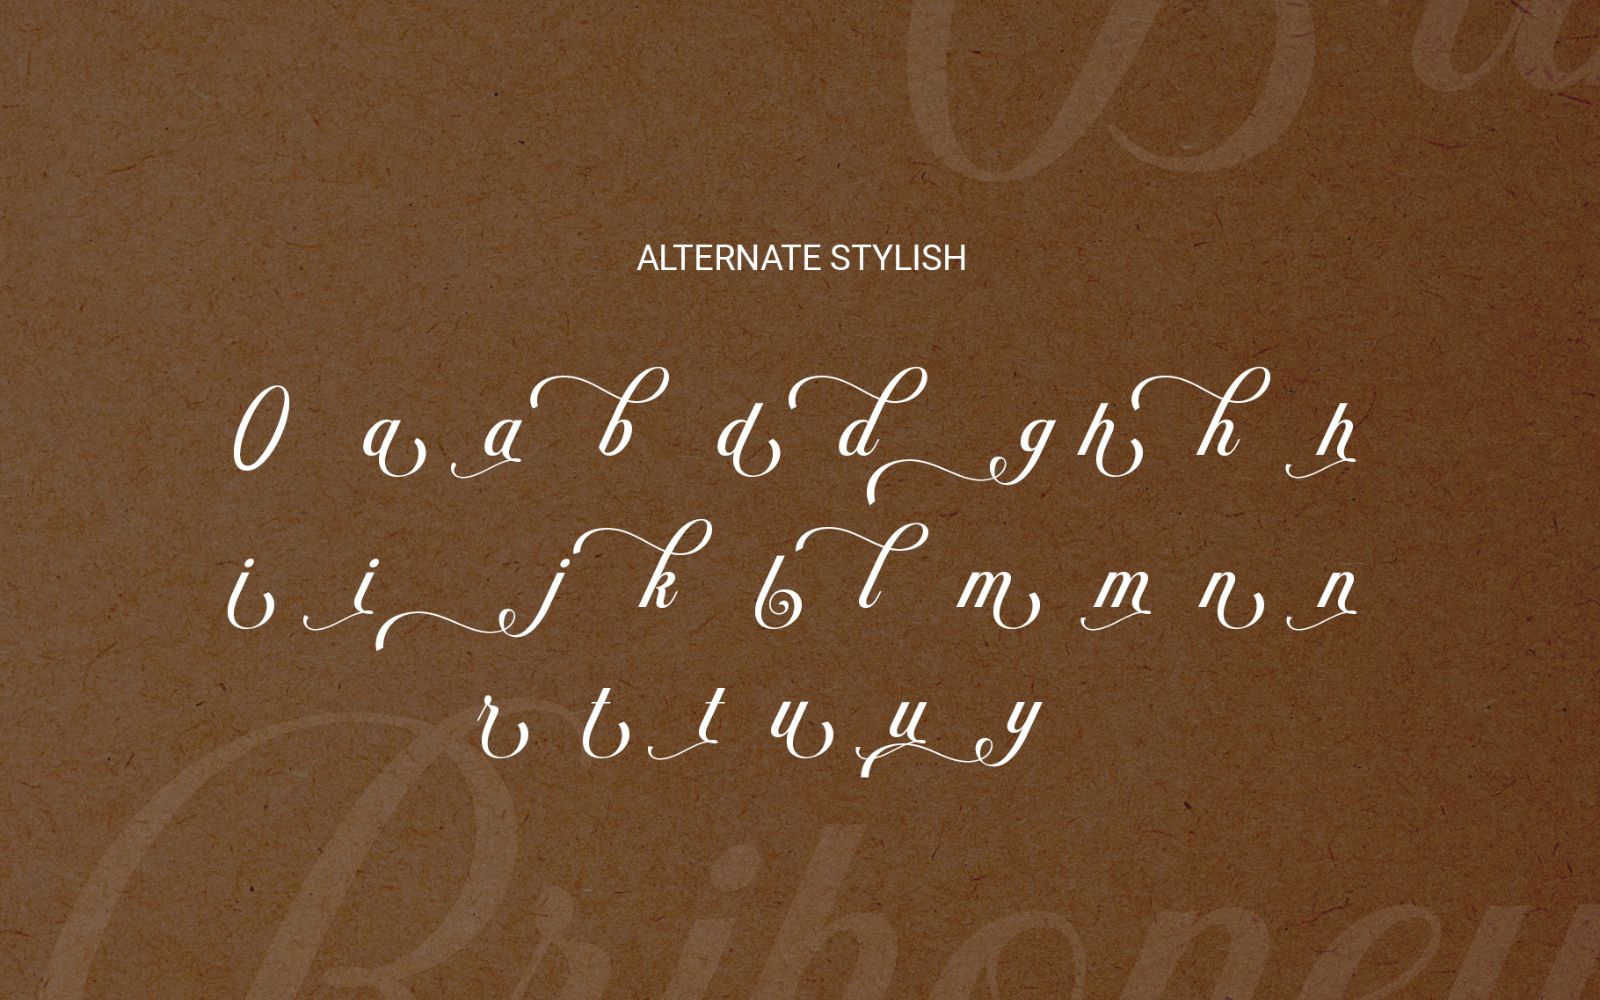 ALTERNATE STYLISH
0 a a b d d g h h h
i i j k l l m m n n
r t t u u y
Brihoney